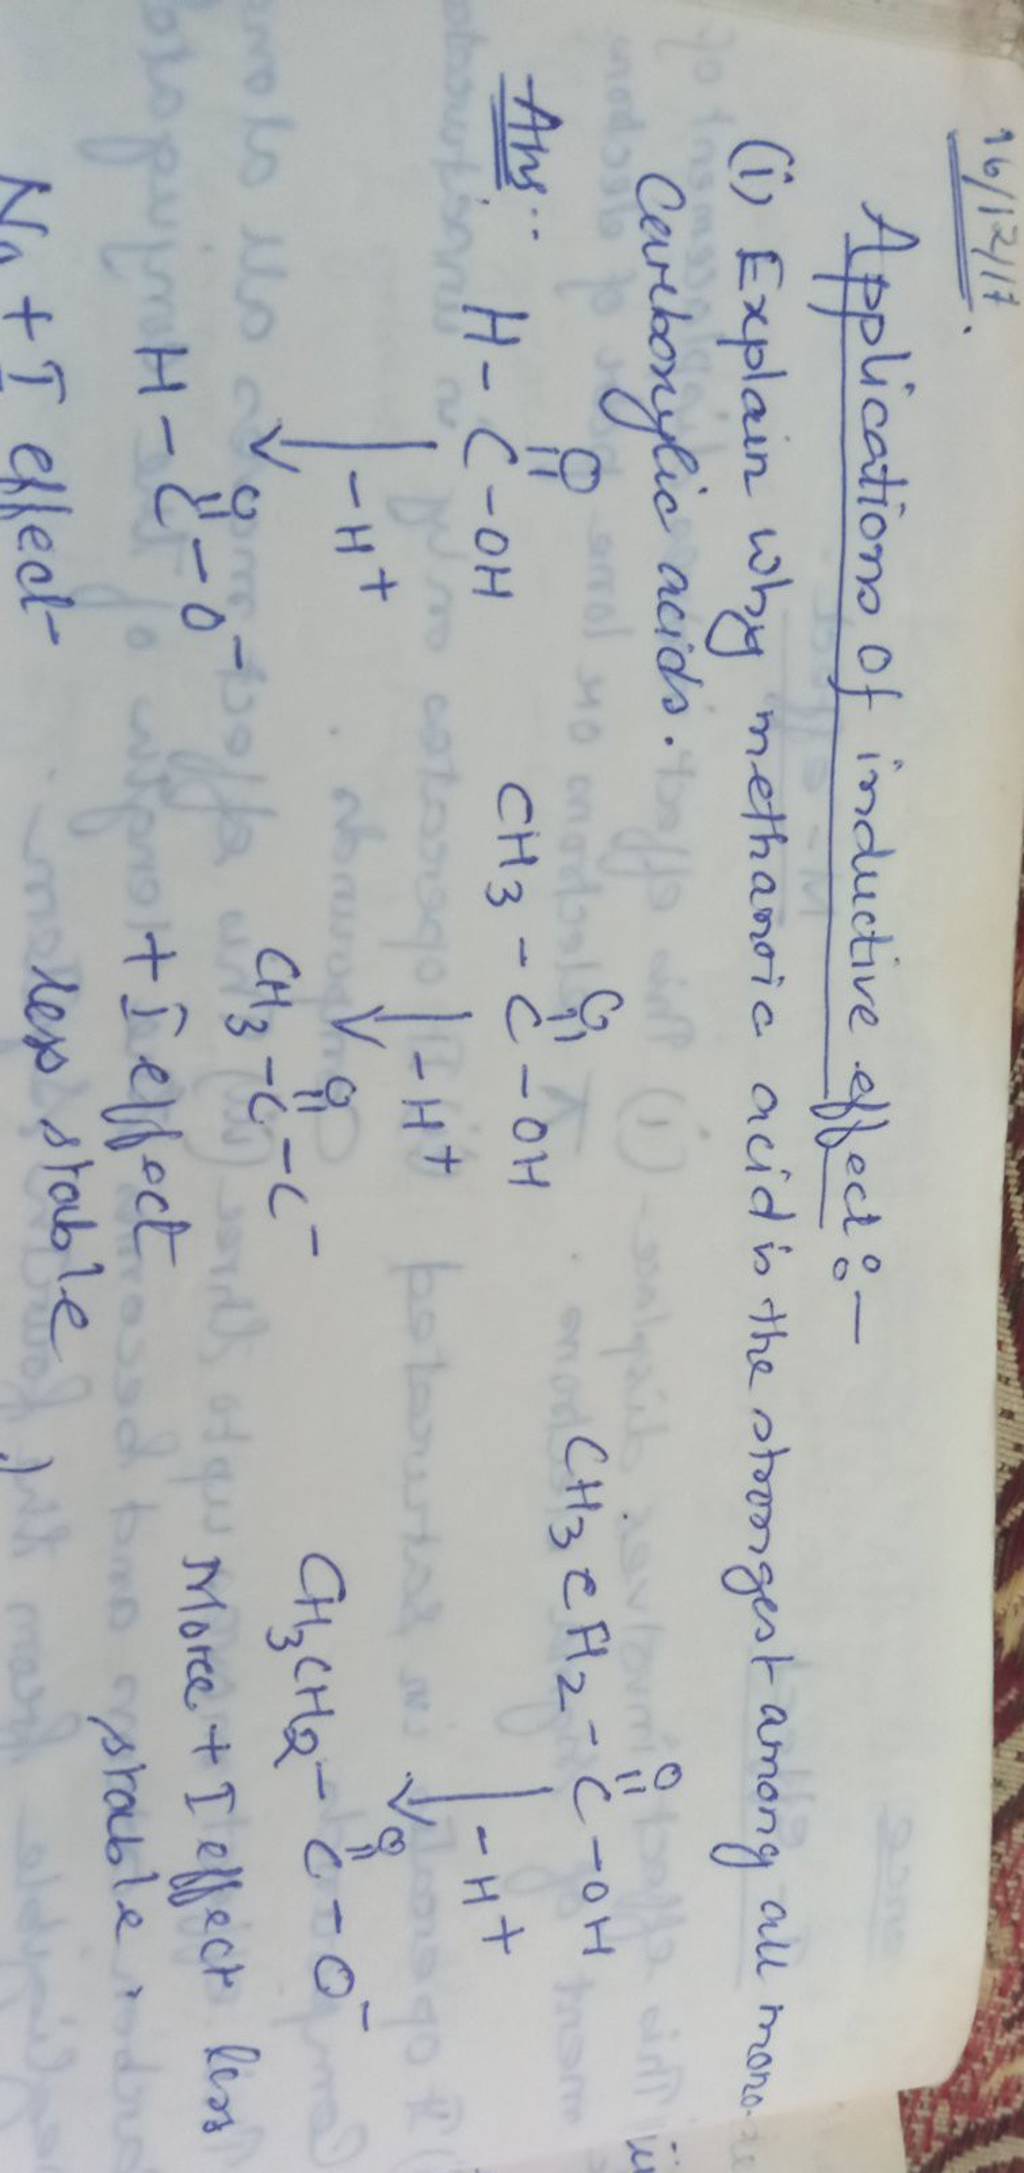 16/12/17.
Applications of inductive effect :-
(i) Explain why methanoic acid is the strongest among all mono-
Carboxylic acids.
Ans:
O O O
H - C - OH CH3 - C - OH CH3CH2 - C - OH
-H+ -H+ -H+
O O O
H - C - O- CH3 - C - C- CH3CH2 - C - O-
No + I effect + I effect More + I effect less
less stable stable.